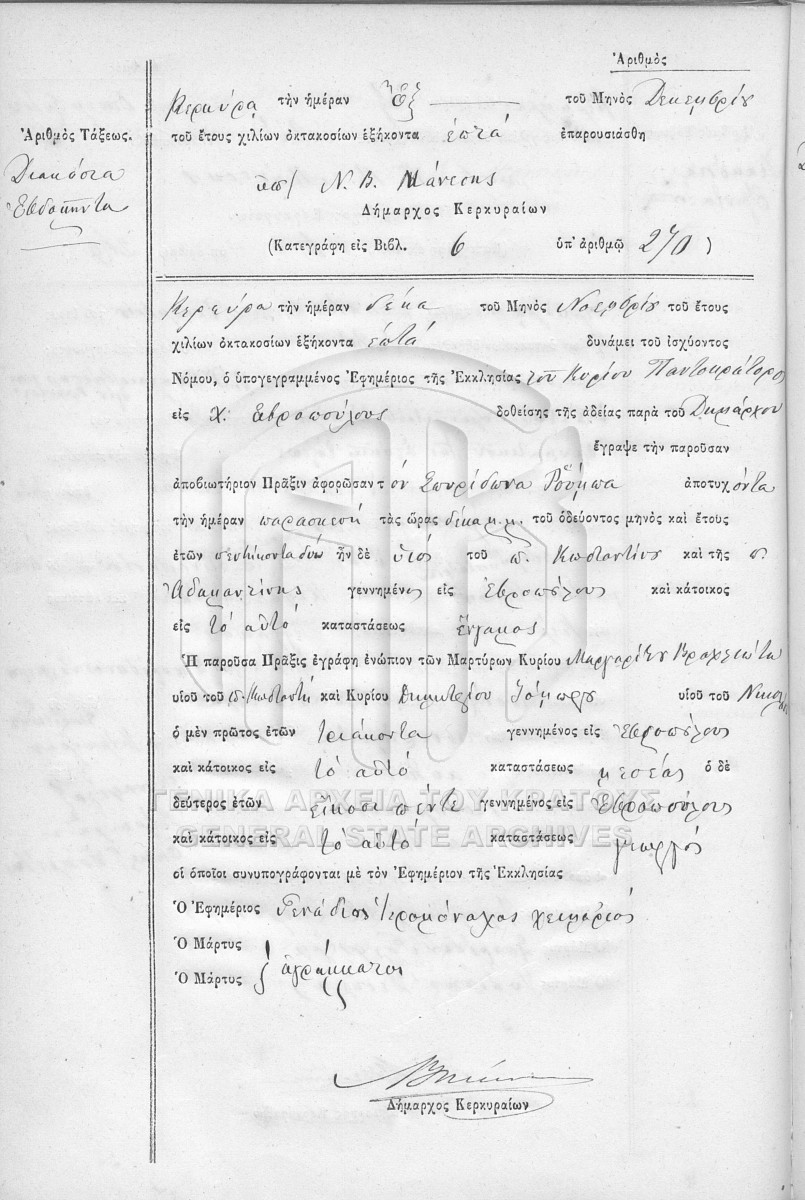 Ἀριθμὸς
Κερκύρᾳ τὴν ἡμέραν Ἕξ τοῦ Μηνὸς Δεκεμβρίου
Ἀριθμὸς Τάξεως.
Διακόσια
Ἑβδομήντα
τοῦ ἔτους χιλίων ὀκτακοσίων ἑξήκοντα ἑπτά ἐπαρουσιάσθη
ὑπ/ Ν. Β. Μάνεσης
Δήμαρχος Κερκυραίων
(Κατεγράφη εἰς Βιβλ. 6 ὑπ' ἀριθμῷ 270)
Κερκύρα τὴν ἡμέραν δέκα τοῦ Μηνὸς Νοεμβρίου τοῦ ἔτους
χιλίων ὀκτακοσίων ἑξήκοντα ἑπτά δυνάμει τοῦ ἰσχύοντος
Νόμου, ὁ ὑπογεγραμμένος Ἐφημέριος τῆς Ἐκκλησίας τοῦ Κυρίου Παντοκράτορος
εἰς χ. Εβροπούλους δοθείσης τῆς ἀδείας παρὰ τοῦ Δημάρχου
ἔγραψε τὴν παροῦσαν
ἀποβιωτήριον Πρᾶξιν ἀφορῶσαν τόν Σπυρίδωνα Ροῦμπα ἀποτυχόντα
τὴν ἡμέραν παρασκευή τὰς ὥρας δέκα π.μ. τοῦ ὁδεύοντος μηνὸς καὶ ἔτους
ἐτῶν πεντήκοντα δυω ἦν δὲ υἱός τοῦ π. Κωσταντίνου καὶ τῆς π.
Αδαμαντίνης γεννημένος εἰς Εβροπούλους καὶ κάτοικος
εἰς τό αὐτό καταστάσεως ἔγγαμος
Ἡ παροῦσα Πρᾶξις ἐγράφη ἐνώπιον τῶν Μαρτύρων Κυρίου Μαργαρίτου Βραχλιώτα
υἱοῦ τοῦ π. Κωσταντή καὶ Κυρίου Δημητρίου υἱοῦ τοῦ Νικολάου
ὁ μὲν πρῶτος ἐτῶν τριάκοντα γεννημένος εἰς Εβροπούλους
καὶ κάτοικος εἰς τό αὐτό καταστάσεως ὁ δὲ
δεύτερος ἐτῶν εἴκοσι πέντε γεννημένος εἰς Εβροπούλους
καὶ κάτοικος εἰς τό αὐτό καταστάσεως γεωργός
οἱ ὁποῖοι συνυπογράφονται μὲ τὸν Ἐφημέριον τῆς Ἐκκλησίας
Ὁ Ἐφημέριος Γενάδιος Ἱερομόναχος
Ὁ Μάρτυς
Ὁ Μάρτυς ἀγράμματοι
Δήμαρχος Κερκυραίων
ΓΕΝΙΚΑ ΑΡΧΕΙΑ ΤΟΥ ΚΡΑΤΟΥΣ
GENERAL STATE ARCHIVES